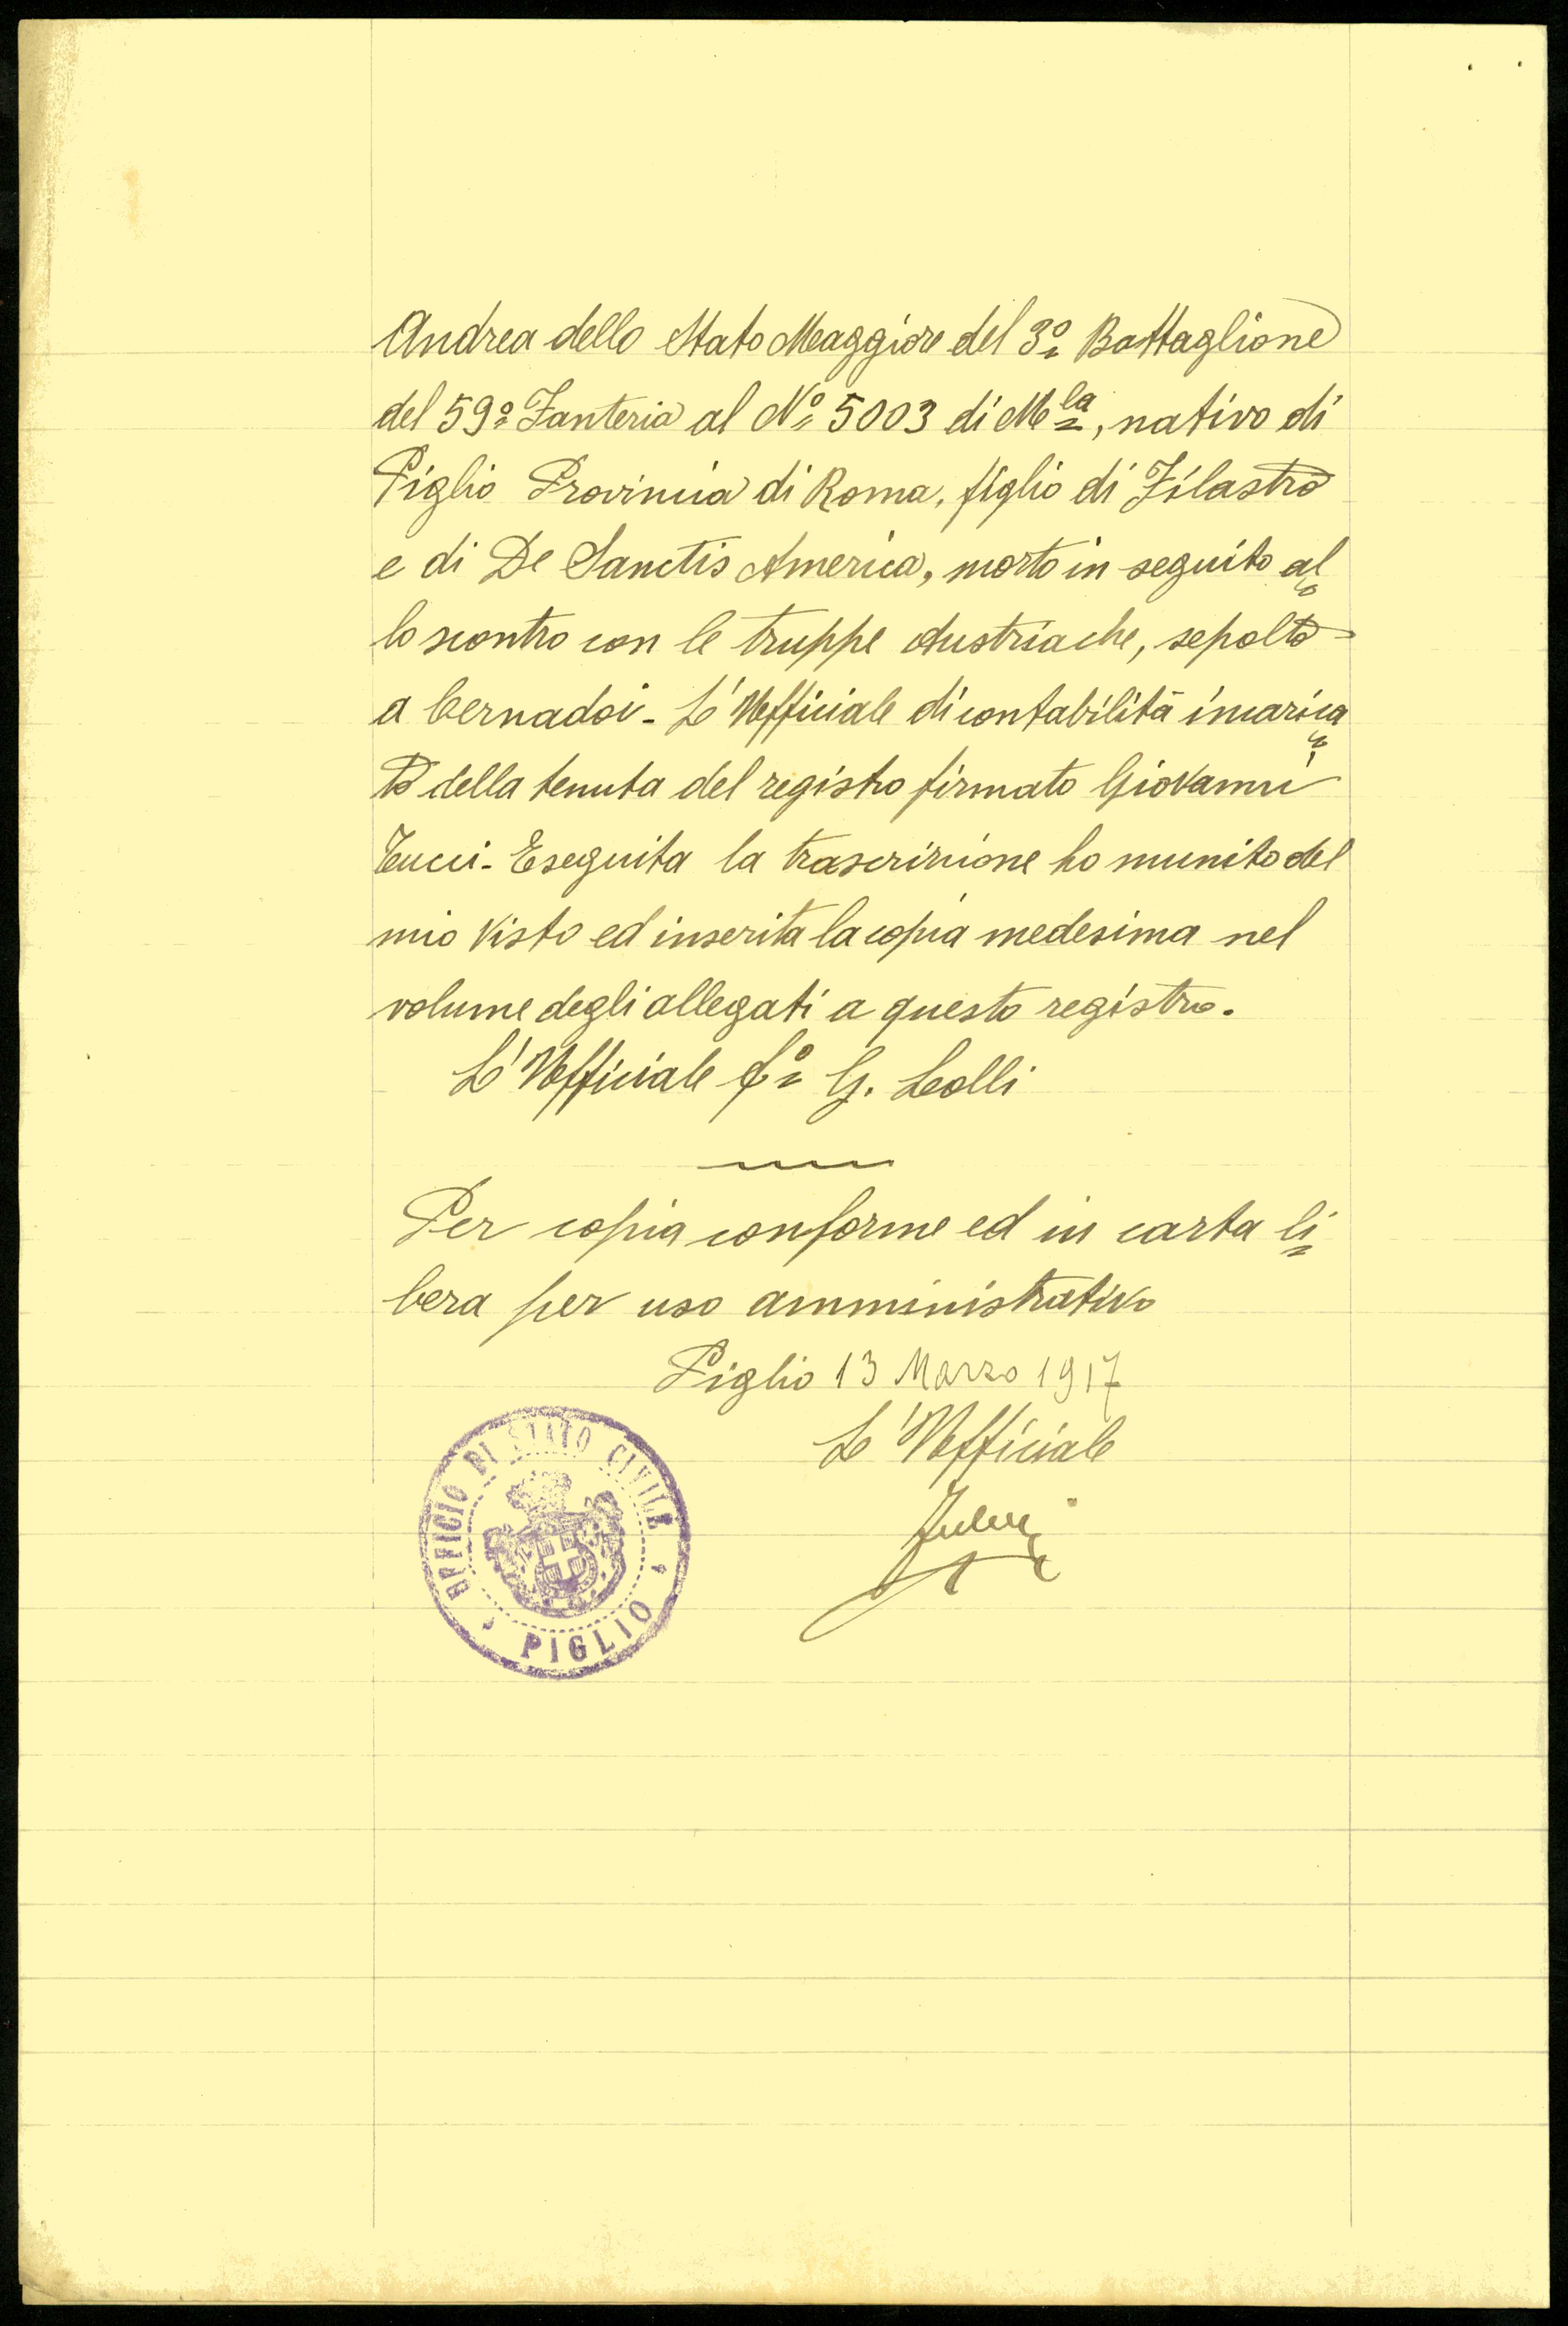 Andrea dello Stato Maggiore del 3º Battaglione
del 59º Fanteria al Nº 5003 di Mla, nativo di
Piglio Provincia di Roma, figlio di Filastro
e di De Sanctis America, morto in seguito al
lo scontro con le truppe Austriache, sepolto
a Cernadoi - L'Ufficiale di contabilità incarica
to della tenuta del registro firmato Giovanni
Tucci - Eseguita la trascrizione ho munito del
mio visto ed inserita la copia medesima nel
volume degli allegati a questo registro.
L'Ufficiale fº G. Lolli
Per copia conforme ed in carta li
bera per uso amministrativo
Piglio 13 Marzo 1917
L'Ufficiale
UFFICIO DI STATO CIVILE
PIGLIO